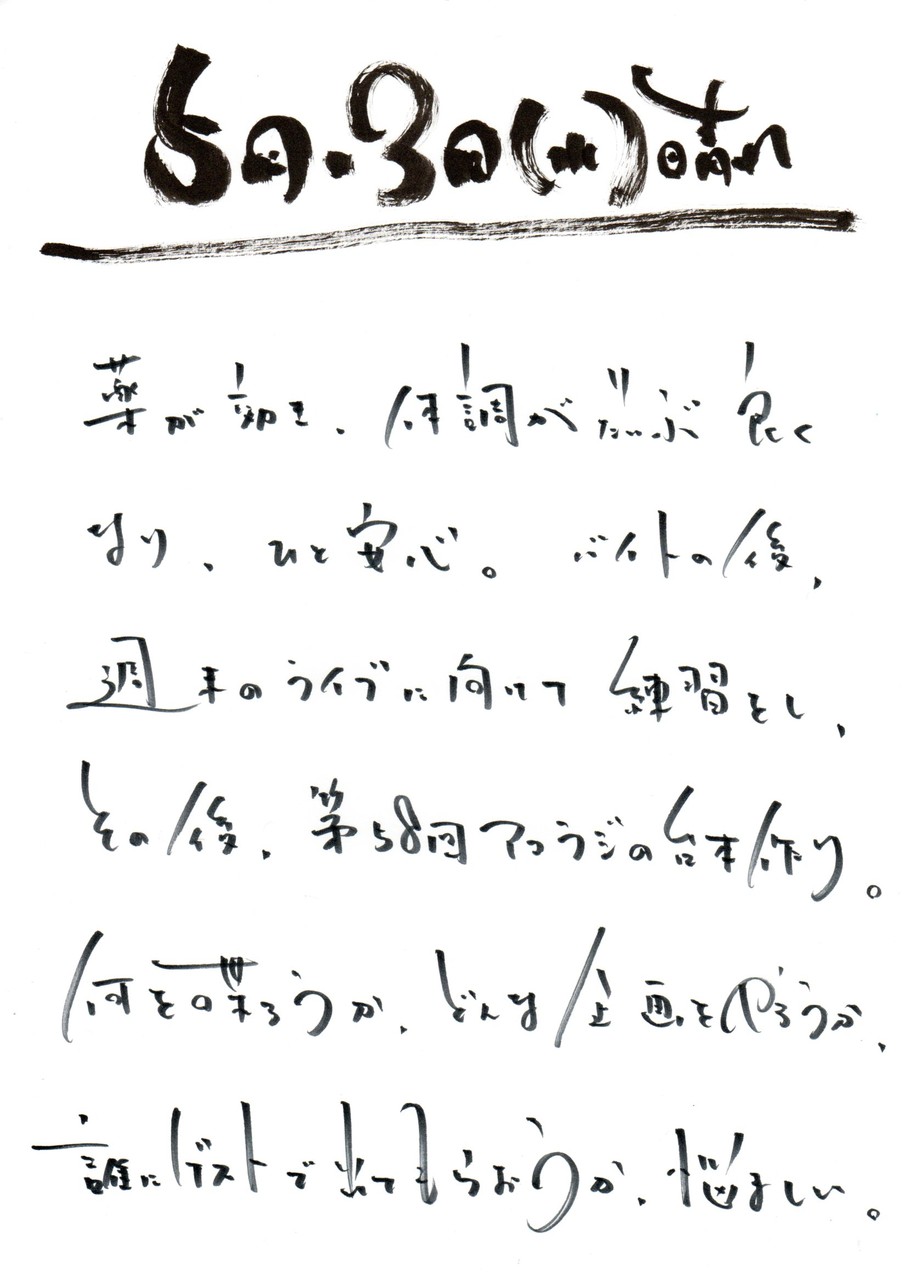 5月・3日(水)晴れ
薬が効き、体調がだいぶ良く
なり、ひと安心。バイトの後、
週末のライブに向けて練習をし、
その後、第58回アコラジの台本作り。
何を喋ろうか、どんな企画をやろうか、
誰にゲストで出てもらおうか、悩ましい。